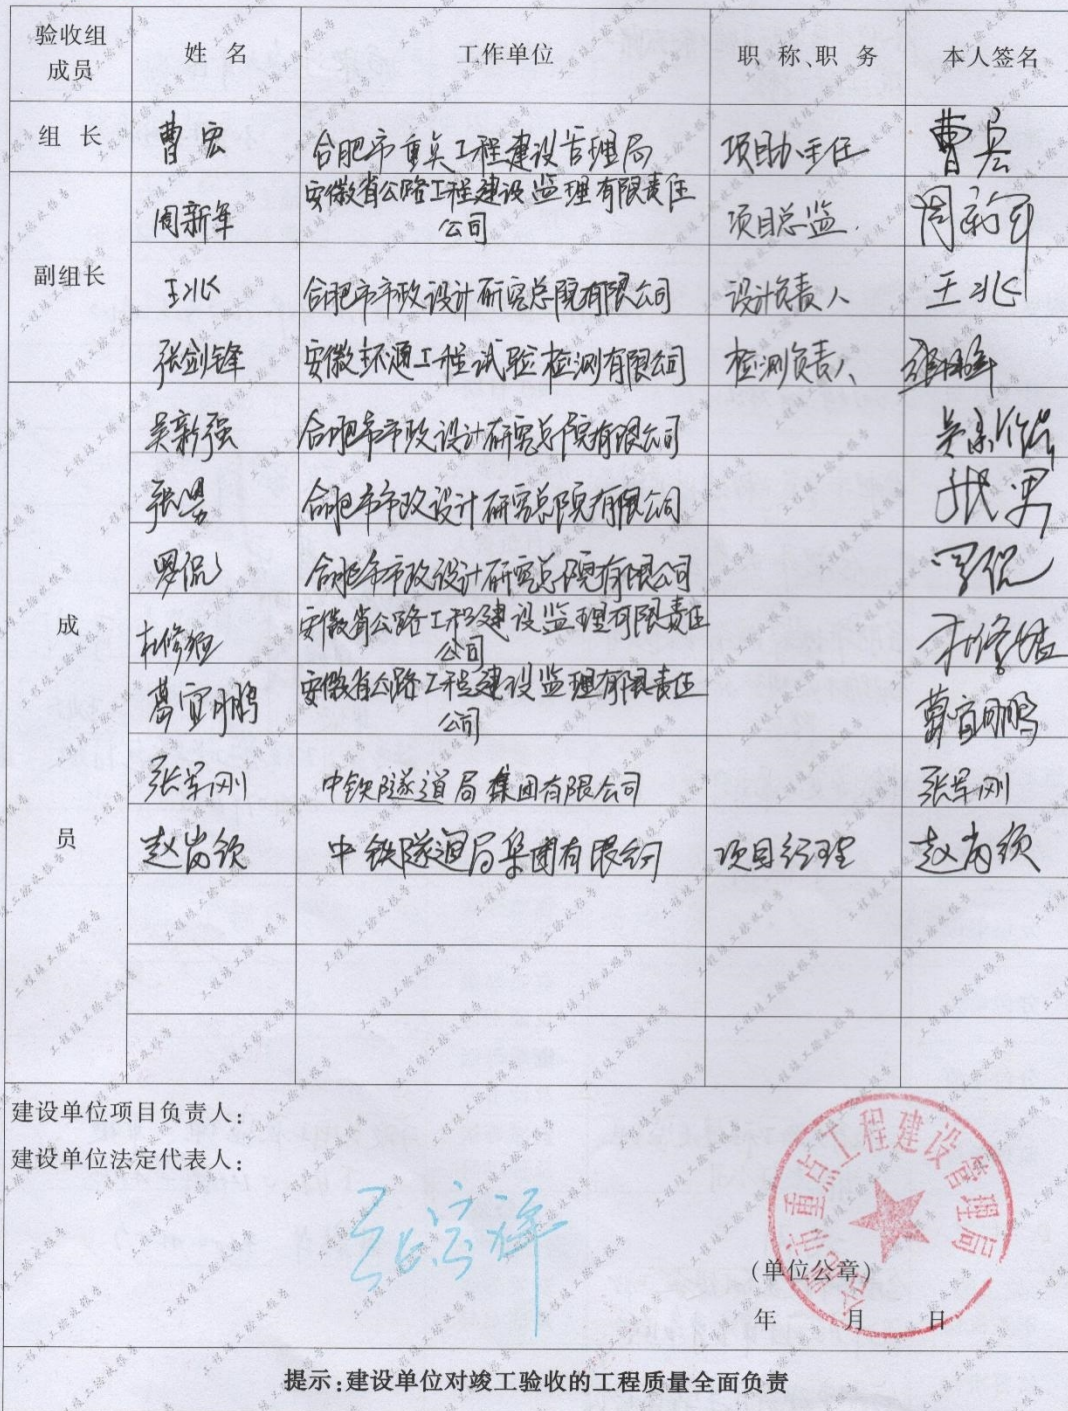 验收组成员 姓 名 工作单位 职 称、职 务 本人签名
组 长 曹宏 合肥市重点工程建设管理局 项目办主任 曹宏
副组长
周新军 安徽省公路工程建设监理有限责任
公司 项目总监 周新军
王兆 合肥市市政设计研究总院有限公司 设计负责人 王兆
张剑锋 安徽环通工程试验检测有限公司 检测负责人
成员
吴新强 合肥市市政设计研究总院有限公司
张勇 合肥市市政设计研究总院有限公司
罗侃 合肥市市政设计研究总院有限公司 罗侃
安徽省公路工程建设监理有限责任
公司
葛宜鹏 安徽省公路工程建设监理有限责任
公司 葛宜鹏
张军刚 中铁隧道局集团有限公司 张军刚
中铁隧道局集团有限公司 项目经理
建设单位项目负责人：
建设单位法定代表人：
合肥市重点工程建设管理局
(单位公章)
年 月 日
提示:建设单位对竣工验收的工程质量全面负责
工程竣工验收报告